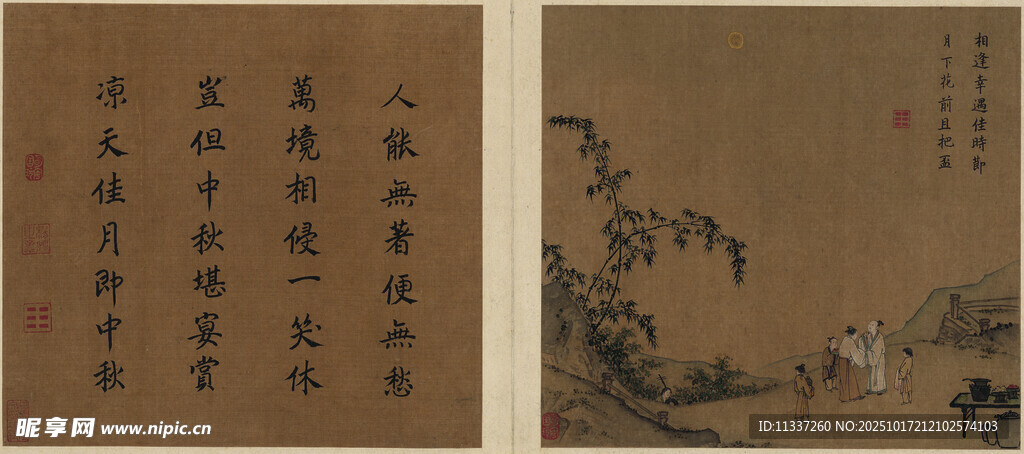 人能無著便無愁
萬境相侵一笑休
豈但中秋堪宴賞
凉天佳月即中秋
相逢幸遇佳時節
月下花前且把盃
昵享网 www.nipic.cn
ID:11337260 NO:20251017212102574103